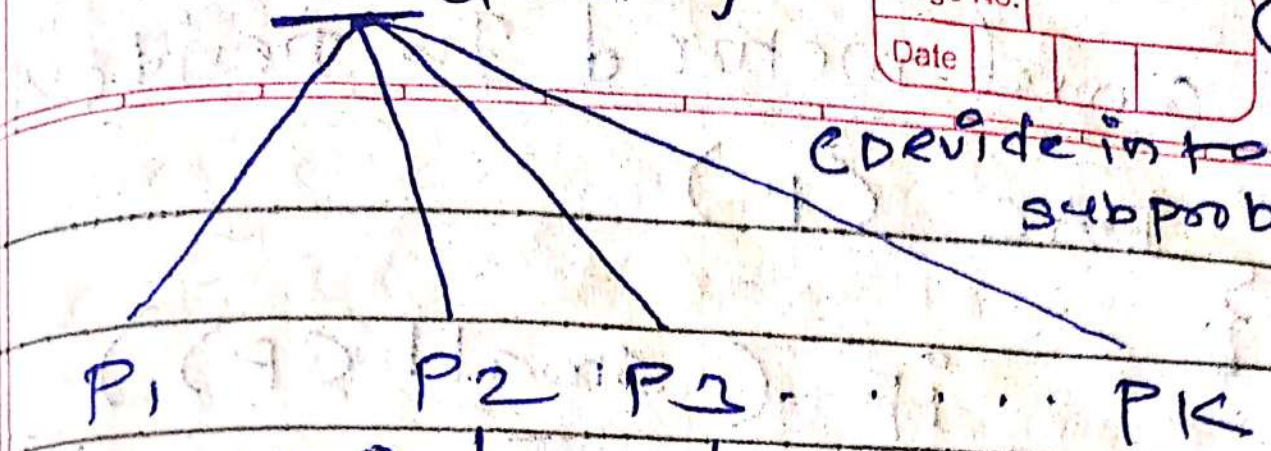 No.
Date
(Devide into
subprob
P1 P2 P3 . . . . . PK